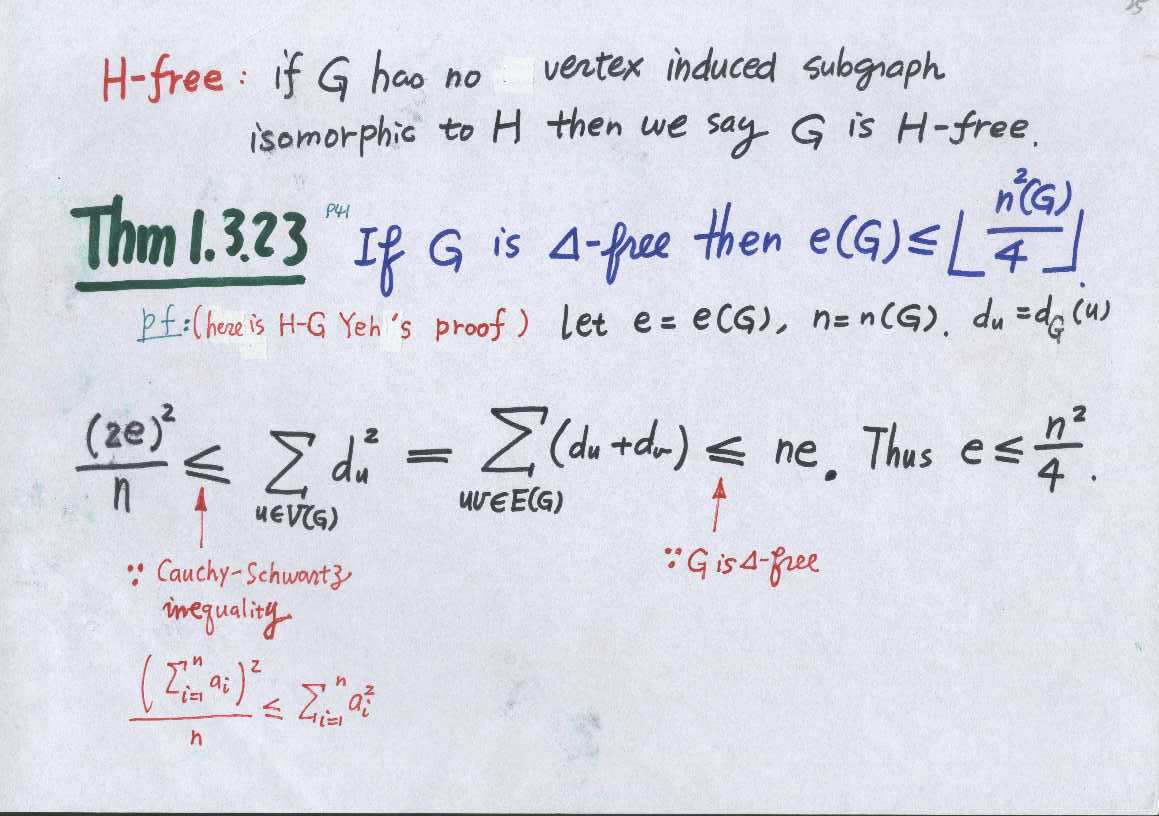 25
H-free: if G has no vertex induced subgraph
isomorphic to H then we say G is H-free.
Thm 1.3.23 P41 If G is Δ-free then e(G) ≤ ⌊n²(G)/4⌋.
pf: (here is H-G Yeh's proof) Let e = e(G), n = n(G). du = dG(u)
(2e)²/n ≤ Σ_{u∈V(G)} du² = Σ_{uv∈E(G)} (du + dv) ≤ ne. Thus e ≤ n²/4.
∵ Cauchy-Schwartz
inequality
∵ G is Δ-free
(Σ_{i=1}^{n} ai)²/n ≤ Σ_{i=1}^{n} ai²